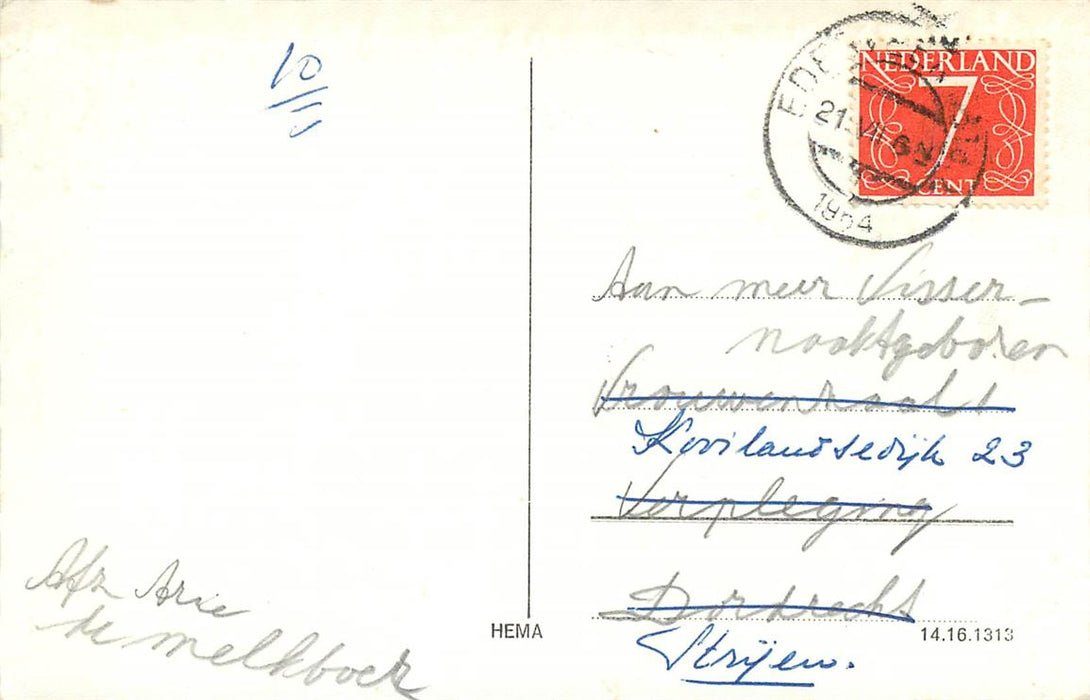 10/11
NEDERLAND
7
CENT
EDE
21 VII 6
1954
Aan meur Visser-
nooktgeboren
Vrouwenraalt
Kooilandsedijk 23
Verpleging
Dordrecht
Strijen.
Afz Arie
de melkboer
HEMA
14.16.1313